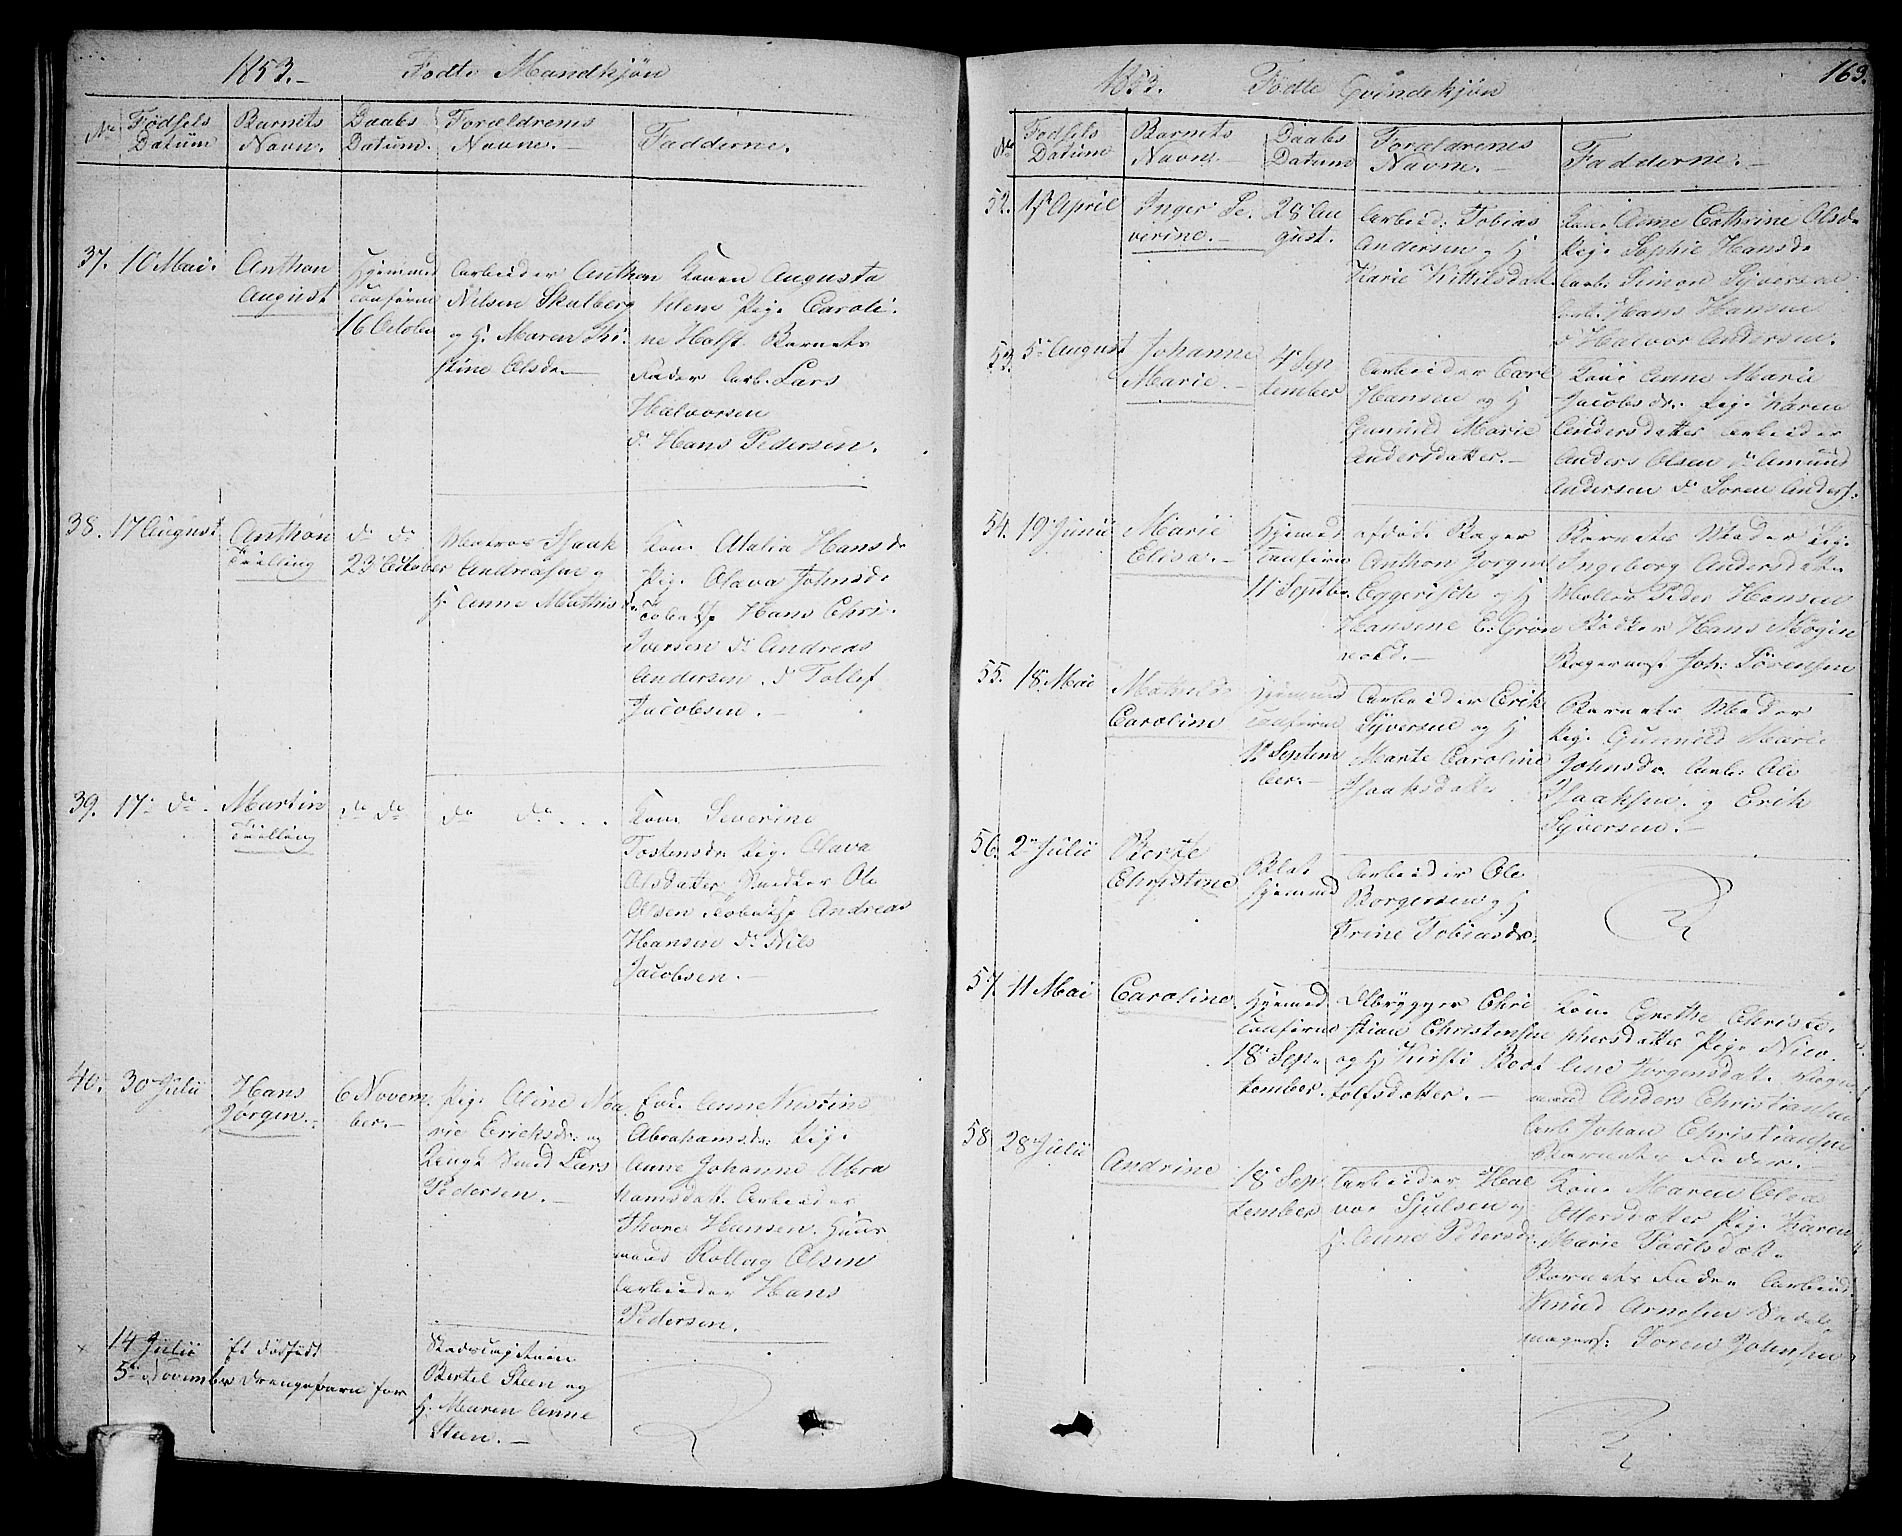 1853.- Födte Mandkjön
No Födsels Datum
Barnets Navn.
Daabs Datum.
Forældrenes Navne.-
Fadderne.
37. 10 Mai.
Anthon
August
Hjemmed
confirm
16 October
Arbeider Anthon
Nilsen Skalberg
og H. Maren Kri-
stine Olsdr.-
Konen Augusta
Pige Caroli-
ne Holst Barnets
Fader Arb. Lars
Halvorsen
do Hans Pedersen.
38. 17 August
Anthon
Tvilling
do do
23 October
Matros Isaak
Andreasen og
H. Anne Mathisd.
Kone Atalia Hansdr
Pige Olava Johnsdr
Hans Chri-
Iversen do Andreas
Andersen. do Tollef
Jacobsen.-
39. 17 do.
Martin
Tvilling
do do
do do...
Kone Severine
Tostensdr Pige Olava
Olsdatter Snedker Ole
Olsen Andreas
Hansen do Nils
Jacobsen.-
40. 30 Julii
Hans
Jörgen.-
6 Novem-
ber.-
Pige Aline Ma-
rie Ericksdr. og
Smed Lars
Pedersen.-
Anne Kirstine
Abrahamsdr: Pige
Anne Johanne Abra
hamsdatt. Arbeider
Thore Hansen. Huus
mand Rollag Olsen
Arbeider Hans
Pedersen.-
14 Julii
5te November
Et dödfödt
Drengebarn for
Stadscapitain
Bertel Steen og
H. Maren Anne
Steen.-
1853. Födte Qvindekjön
163.
No Födsels Datum
Barnets Navn.-
Daabs Datum
Forældrenes Navne.-
Fadderne.-
52. 17 April
Inger Se-
verine.-
28 Au
gust.
Arbeid: Tobias
Andersen og H
Karie Kittilsdatt.
Kone Anne Cathrine Olsdr
Pige Sophie Hansdr
Arb. Simon Syversen
Arb. Hans Hansen
do Halvor Andersen.
53. 5 August
Johanne
Marie.-
4 Sep
tember
Arbeider Carl
Hansen og H
Gunnild Marie
Andersdatter.-
Kone Anne Marie
Jacobsdr. Pige Karen
Andersdatter Arbeider
Anders Olsen do Amund
Andersen do Soren Anders.
54. 19 Junii
Marie
Elisa.-
Hjemmed
confirm
11 Septbr.
afdöde Bager
Anthon Jörgen
Eggerisch og H
Hansine E. Grön
vold.-
Barnets Moder Pige
Ingeborg Andersdatter
Möller Peder Hansen
Bödker Hans
Bagermest Joh: Sörensen
55. 18 Mai
Mathilde
Caroline
Hjemmed
confirm
18 Septem
ber.-
Arbeider Erik
Syversen og H
Marte Caroline
Isaaksdatt.
Barnets Moder
Pige Gunnild Marie
Johnsdr. Arb: Ole
Isaaksen. og Erik
Syversen.-
56. 2 Julii
Berte
Christine
Blot
hjemmed
Arbeider Ole
Borgersen og H
Trine Tobiasdr.
57. 11 Mai
Caroline
Hjemmed
confirm
18 Sep-
tember.
Ölbrygger Chri
stian Christensen
og H Kirsti Boot
tolfsdatter.-
Kone Grethe Christo-
phersdatter Pige Nico-
line Jörgensdatt. Vogn
mand Anders Christiansen
Arb Johan Christiansen
Barnets Fader.
58. 28 Julii
Andrine
18 Sep
tember
Arbeider Hal
vor Sjulsen og
H. Anne Pedersdr.
Kone Maren Olea
Ottersdatter Pige Karen
Marie Paulsdatt.
Barnets Fader Arbeid.
Knud Arnesen Sadel
magers. Soren Johnsen